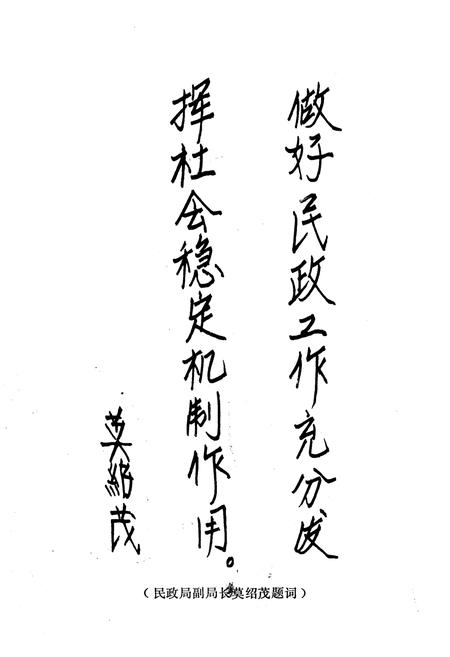 做好民政工作充分发
挥社会稳定机制作用。
莫绍茂
（民政局副局长莫绍茂题词）